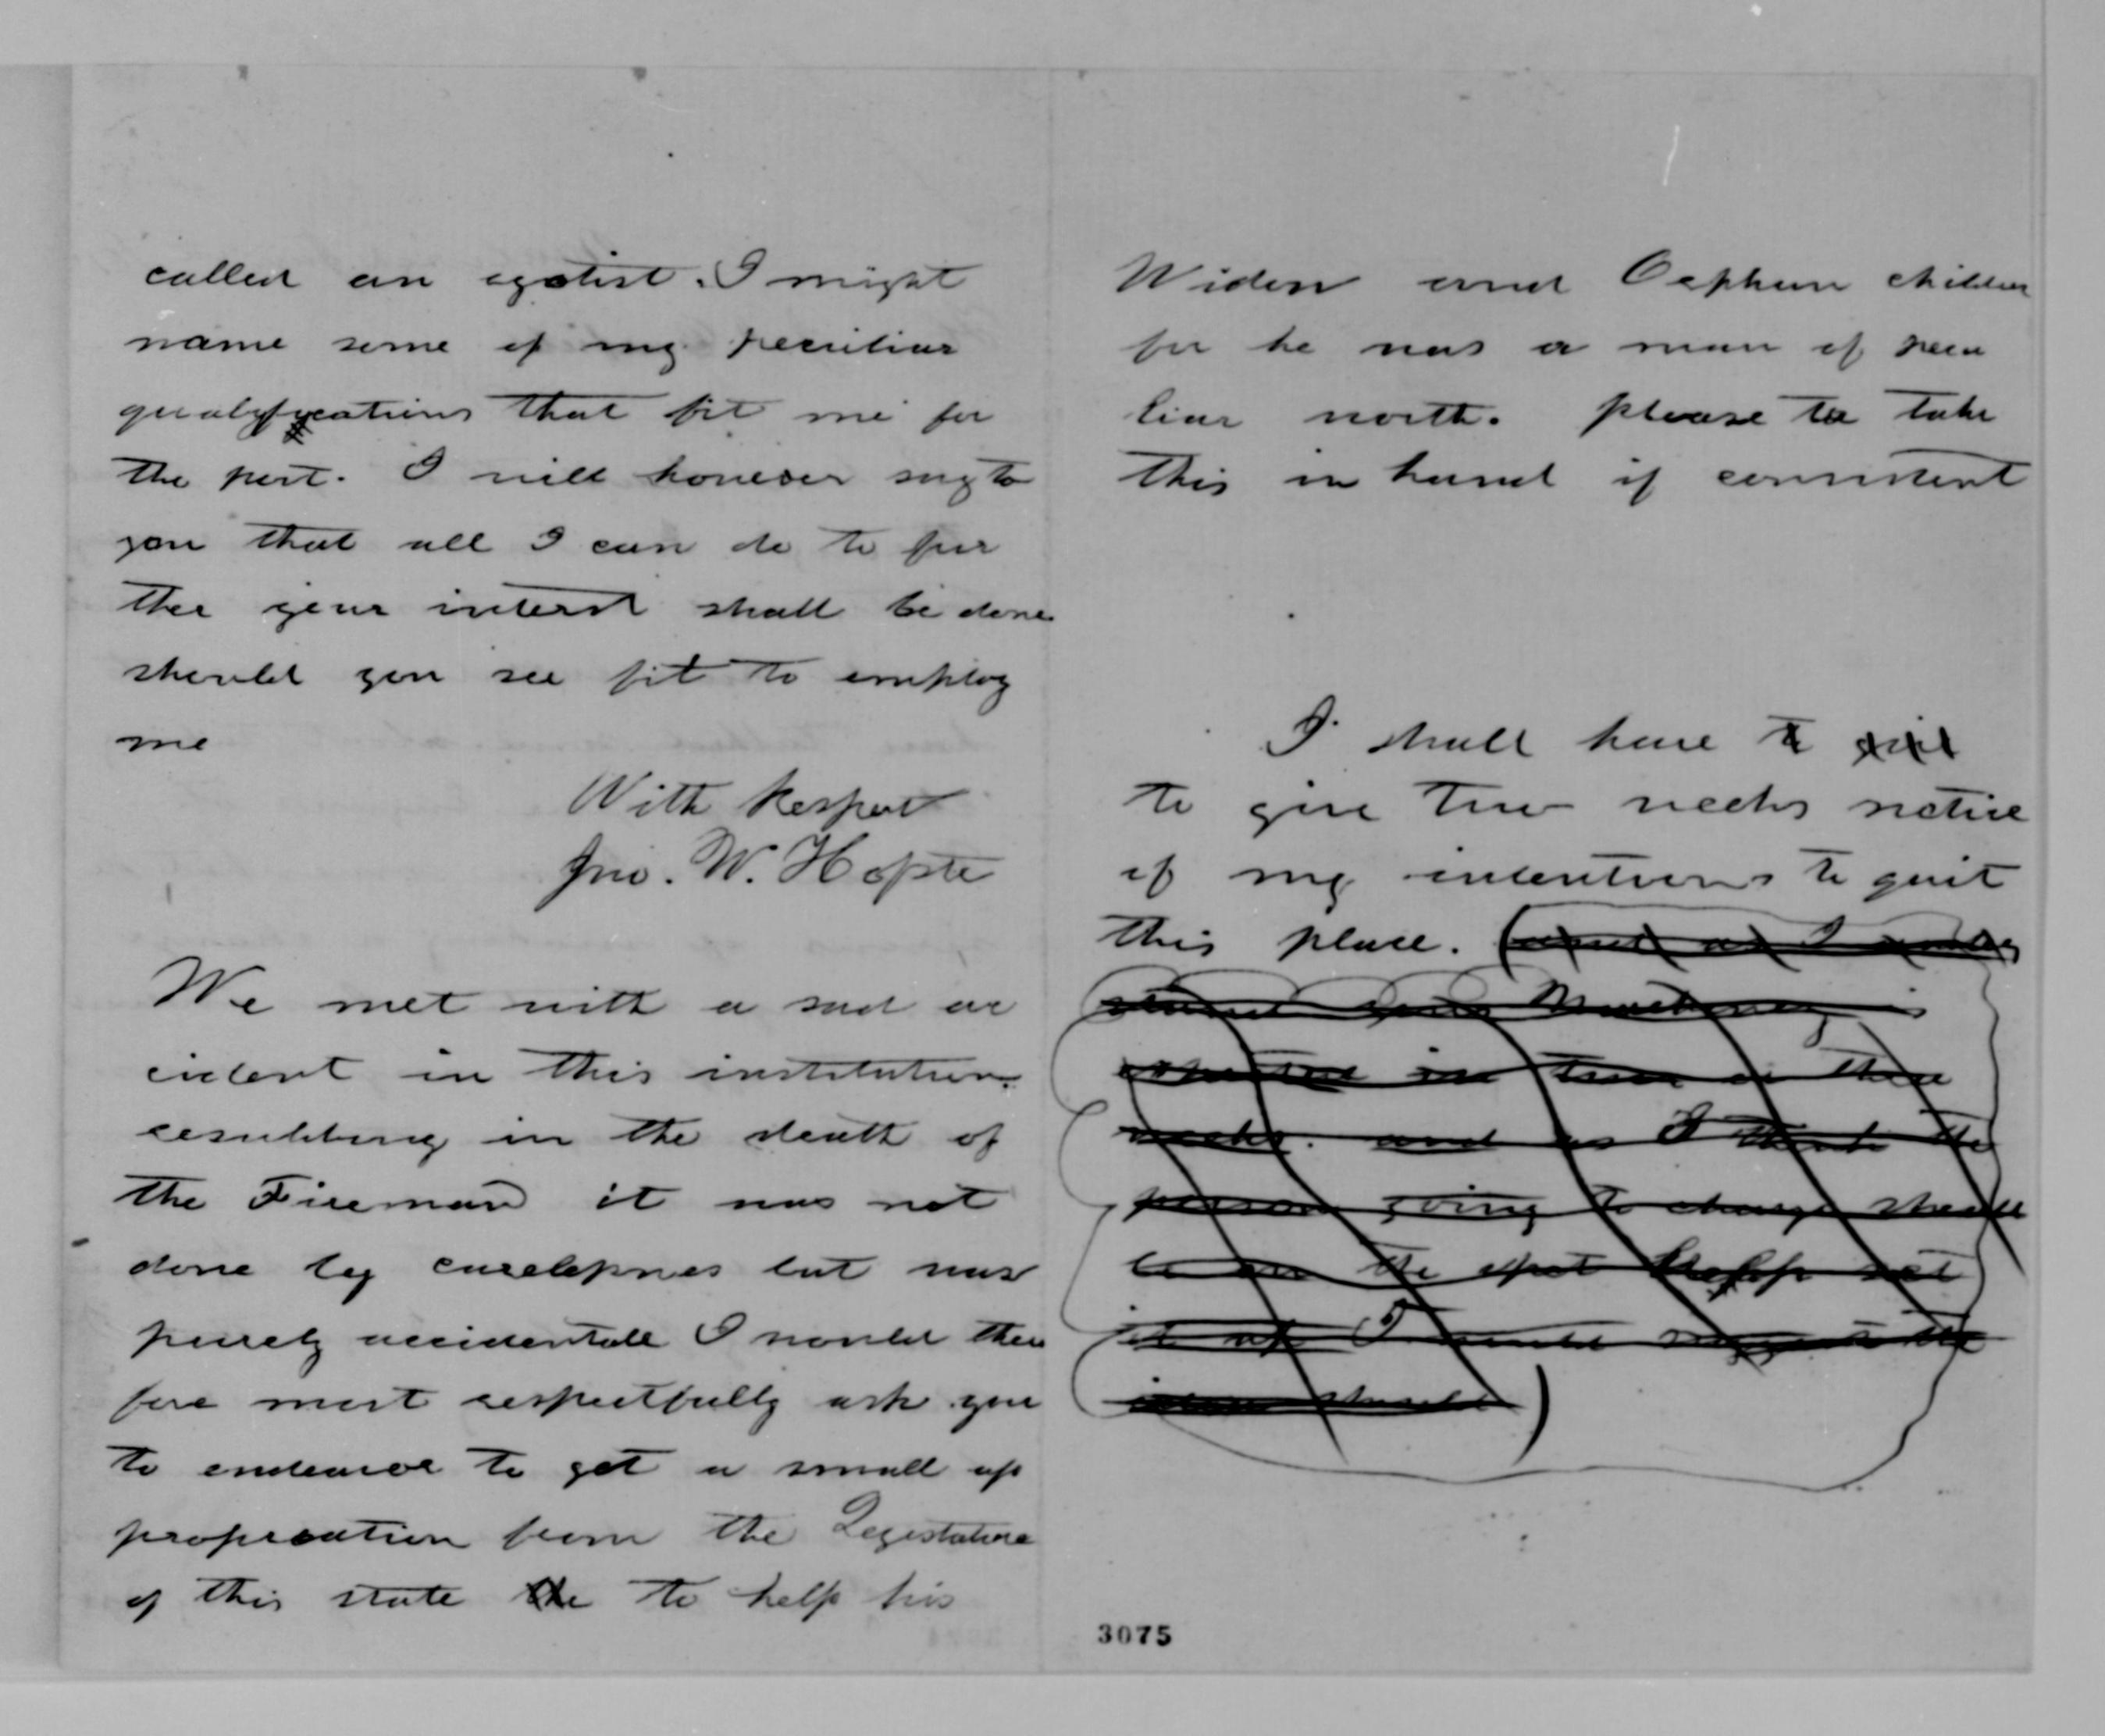 called an egotist. I might
name some of my peculiar
qualyfycations that fit me for
the post. I will however say to
you that all I can do to fur
ther your interst shall be done
should you see fit to employ
me
With Respect
Jno. W. Hopte
We met with a sad ac
cident in this institution.
resulting in the death of
the Fireman it was not
done by carelessness but was
purely accidentall I would there
fore most respectfully ask you
to endeavor to get a small ap
propreation from the Legislature
of this state the to help his
Widow and Orphan children
for he was a man of pecu
liar worth. please to take
this in hand if consistent
I shall have to
to give two weeks notice
of my intentions to quit
this place. (and as I
your Machinery is
in two or three
weeks. and as I think the
person going to charge should
be on the spot to help set
it up I would suggest the
idea should)
3075